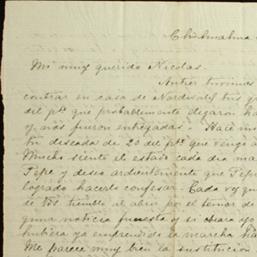 Chihuahua
Mi muy querido Nicolas.
Antier tuvimos
contrar en casa de Nordwald tus
del pº que probablemente llegaron
y nos fueron entregadas. Hace
tu deseada de 20 del pº que vengo á
Mucho siento el estado cada dia
Pepe y deseo ardientemente que
logrado hacerlo confesar. Cada vez que
tiemblo al abrir por el temor de
guna noticia funesta y si
hubiera ya emprendido la marcha
Me parece muy bien la institucion